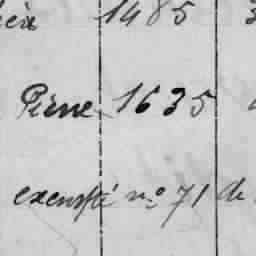 1485
Pierne 1635
exempté no 71 de